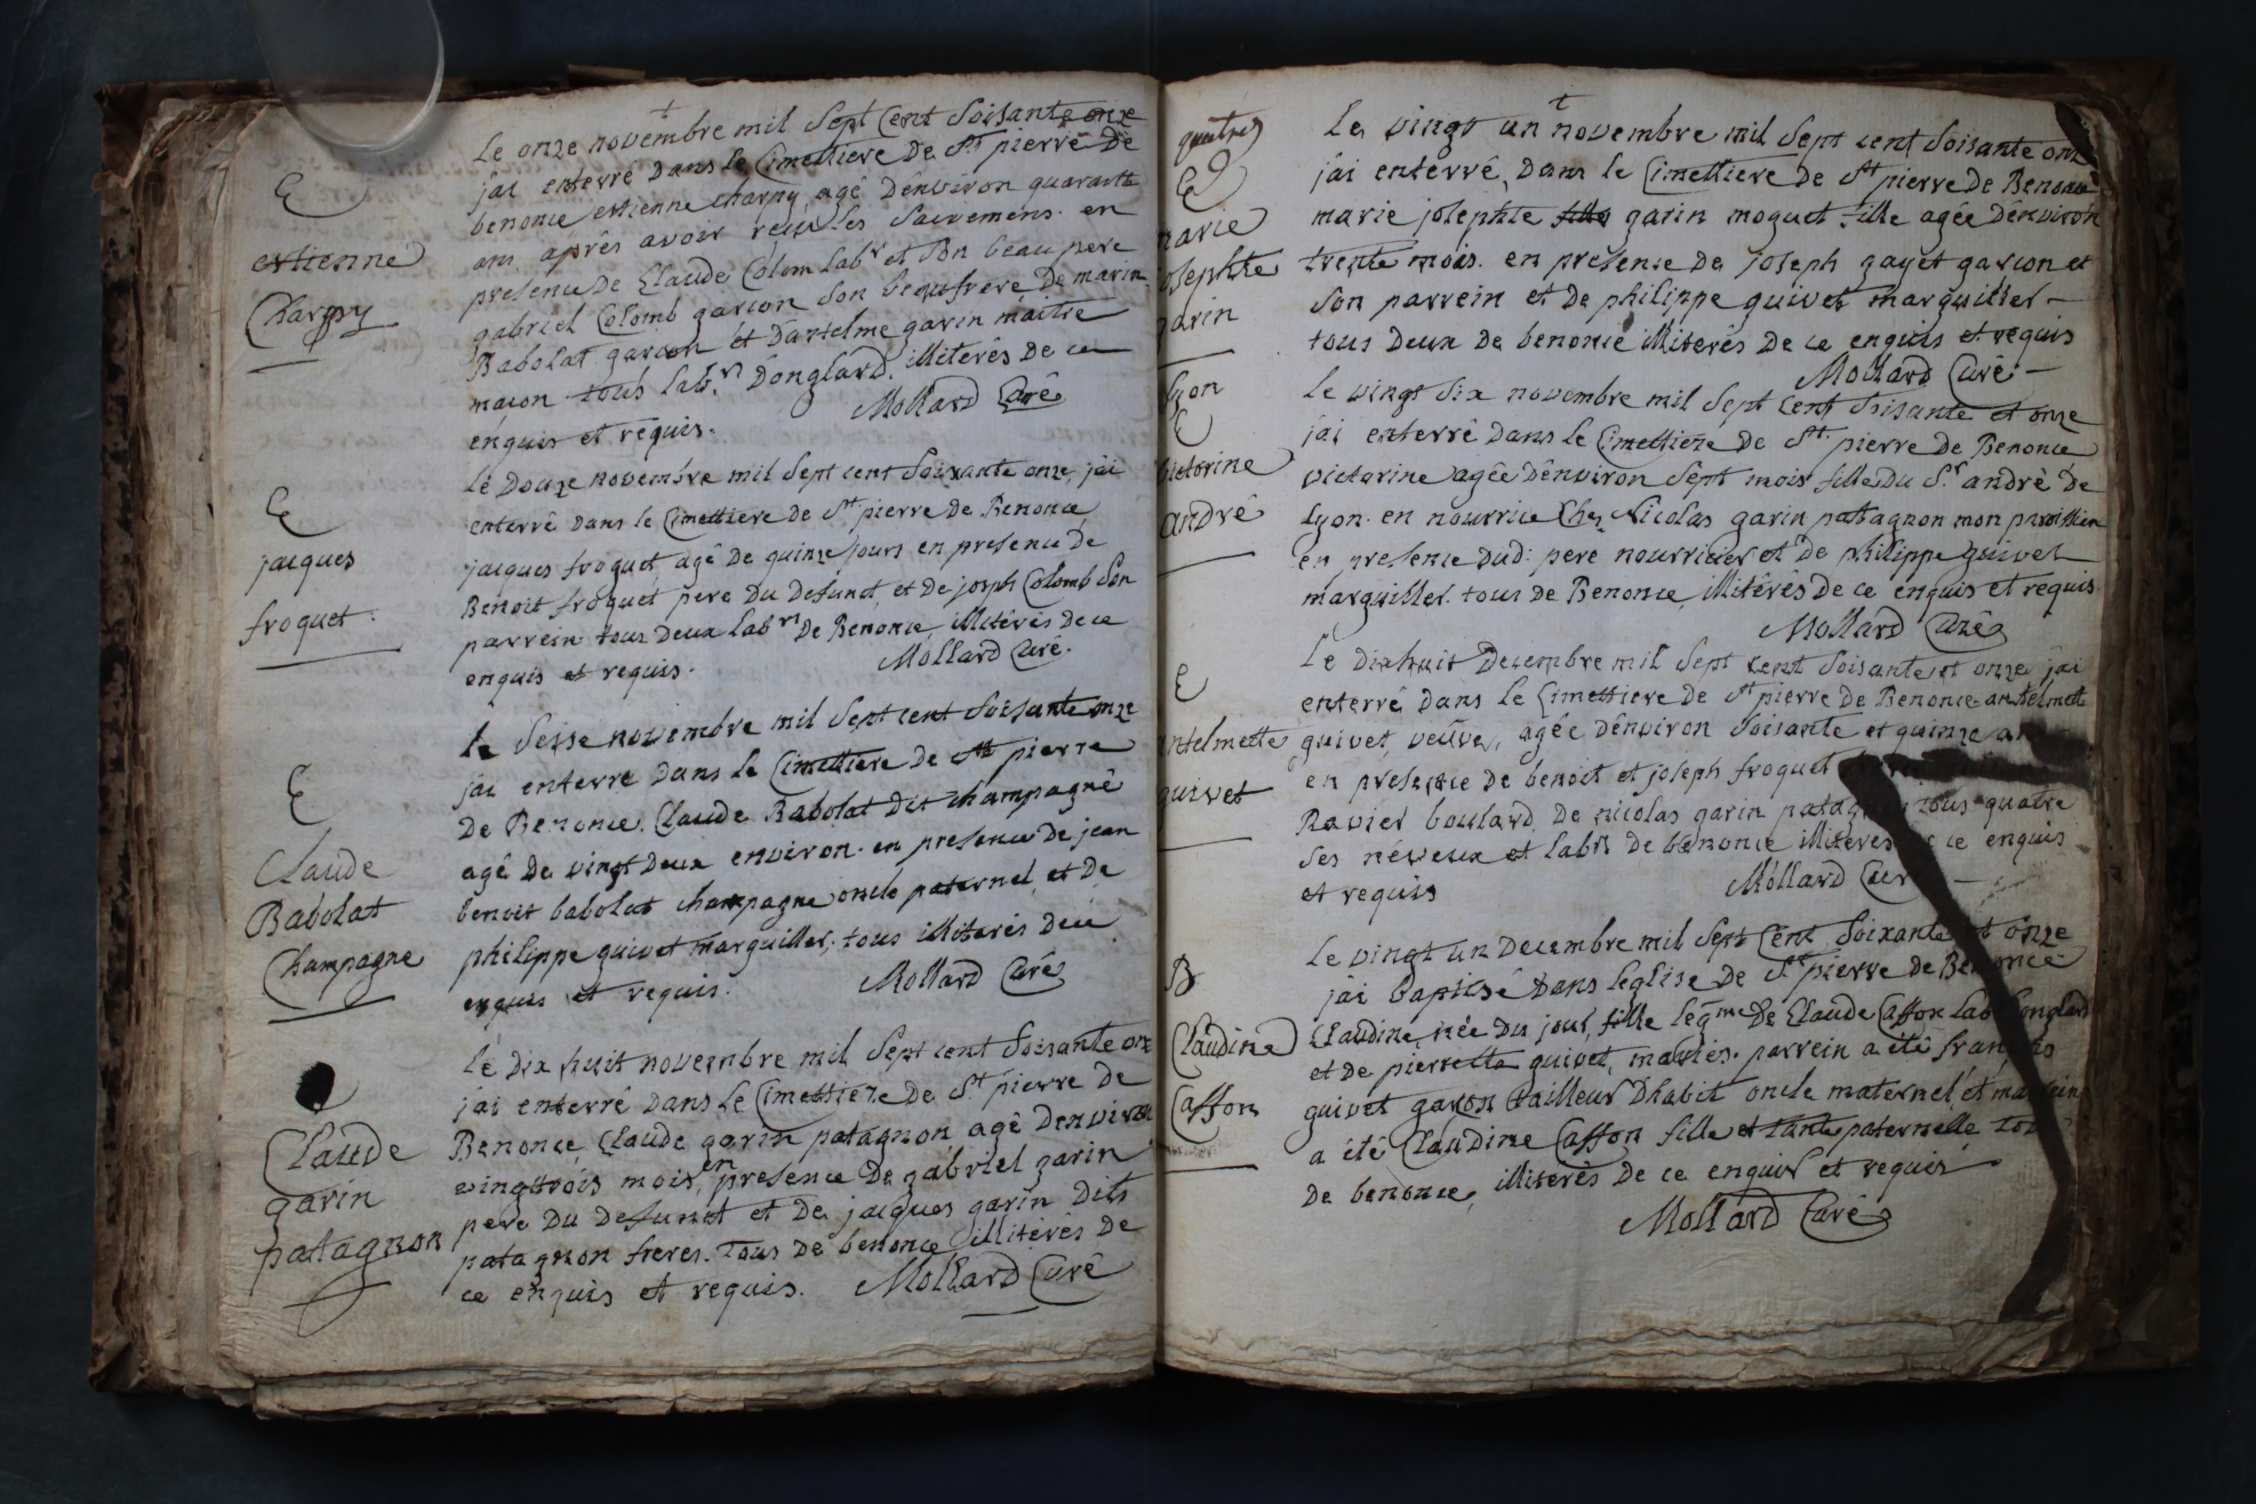 E
estienne
Charpy
Le onze novembre mil Sept Cent Soisante onze
j'ai enterré dans le Cimettiere de St pierre de
benonce estienne charpy agé d'environ quarante
ans après avoir reçu les Sacremens. en
presence de Claude Colom labr et Son beau pere
gabriel Colomb garcon Son beaufrere, de marin
Babolat garcon et d'antelme garin maitre
macon tous labrs d'onglard. illiterés de ce
enquis et requis. Mollard Curé
E
jacques
froquet.
Le douze novembre mil Sept cent Soixante onze, j'ai
enterré dans le Cimettiere de St pierre de Benonce
jacques froquet agé de quinze jours en presence de
Benoit froquet pere du defunct, et de joseph Colomb Son
parrein tous deux labrs de Benonce, illiterés de ce
enquis et requis. Mollard Curé.
E
Claude
Babolat
Champagne
le Seise novembre mil Sept cent Soisante onze
j'ai enterré dans le Cimettiere de St pierre
De Benonce. Claude Babolat dit champagne
agé de vingt deux environ. en presence de jean
benoit babolat champagne oncle paternel, et de
philippe guivet marguiller, tous illiterés de ce
enquis et requis. Mollard Curé
Claude
garin
patagnon
Le dix huit novembre mil Sept cent Soisante onze
j'ai enterré dans le Cimettiere de St pierre de
Benonce, Claude garin patagnon agé d'environ
vingttrois mois, en presence de gabriel garin
pere du defunct et de jacques garin dits
patagnon freres. tous de benonce illiterés de
ce enquis et requis. Mollard Curé
quatre
E
marie
josephte
garin
Le vingt un novembre mil Sept cent Soisante onze
j'ai enterré, dans le Cimettiere de St pierre de Benonce
marie josephte fille garin moquet fille agée d'environ
trente mois. en presence de joseph gayet garcon et
Son parrein et de philippe guivet marguiller
tous deux de benonce illiterés de ce enquis et requis
Mollard Curé
Lyon
E
victorine
andré
Le vingt six novembre mil Sept Cent Soisante et onze
j'ai enterré dans le Cimettiere de St. pierre de Benonce
victorine agée d'environ Sept mois fille du Sr. andré de
Lyon. en nourrice chez Nicolas garin patagnon mon paroissien
en presence dud: pere nourricier et de philippe guivet
marguiller. tous de Benonce, illiterés de ce enquis et requis.
Mollard Curé
E
antelmette
guivet
Le dixhuit Decembre mil Sept cent Soisante et onze j'ai
enterré dans le Cimettiere de St pierre de Benonce antelmette
guivet, veuve, agée d'environ Soisante et quinze ans
en presence de benoit et joseph froquet
Ravier boulard de nicolas garin patagnon tous quatre
Ses néveux et labrs de benonce illiterés de ce enquis
et requis Mollard Curé
B
Claudine
Casson
Le vingt un Decembre mil Sept Cent Soixante et onze
j'ai baptisé dans leglise de St pierre de Benonce
Claudine, née du jour, fille legme de Claude Casson lab d'onglard
et de pierrette guivet, mariés. parrein a été françois
guivet garcon tailleur d'habit oncle maternel, et marreine
a été Claudine Casson fille et tante paternelle tous
de benonce, illiterés de ce enquis et requis
Mollard Curé